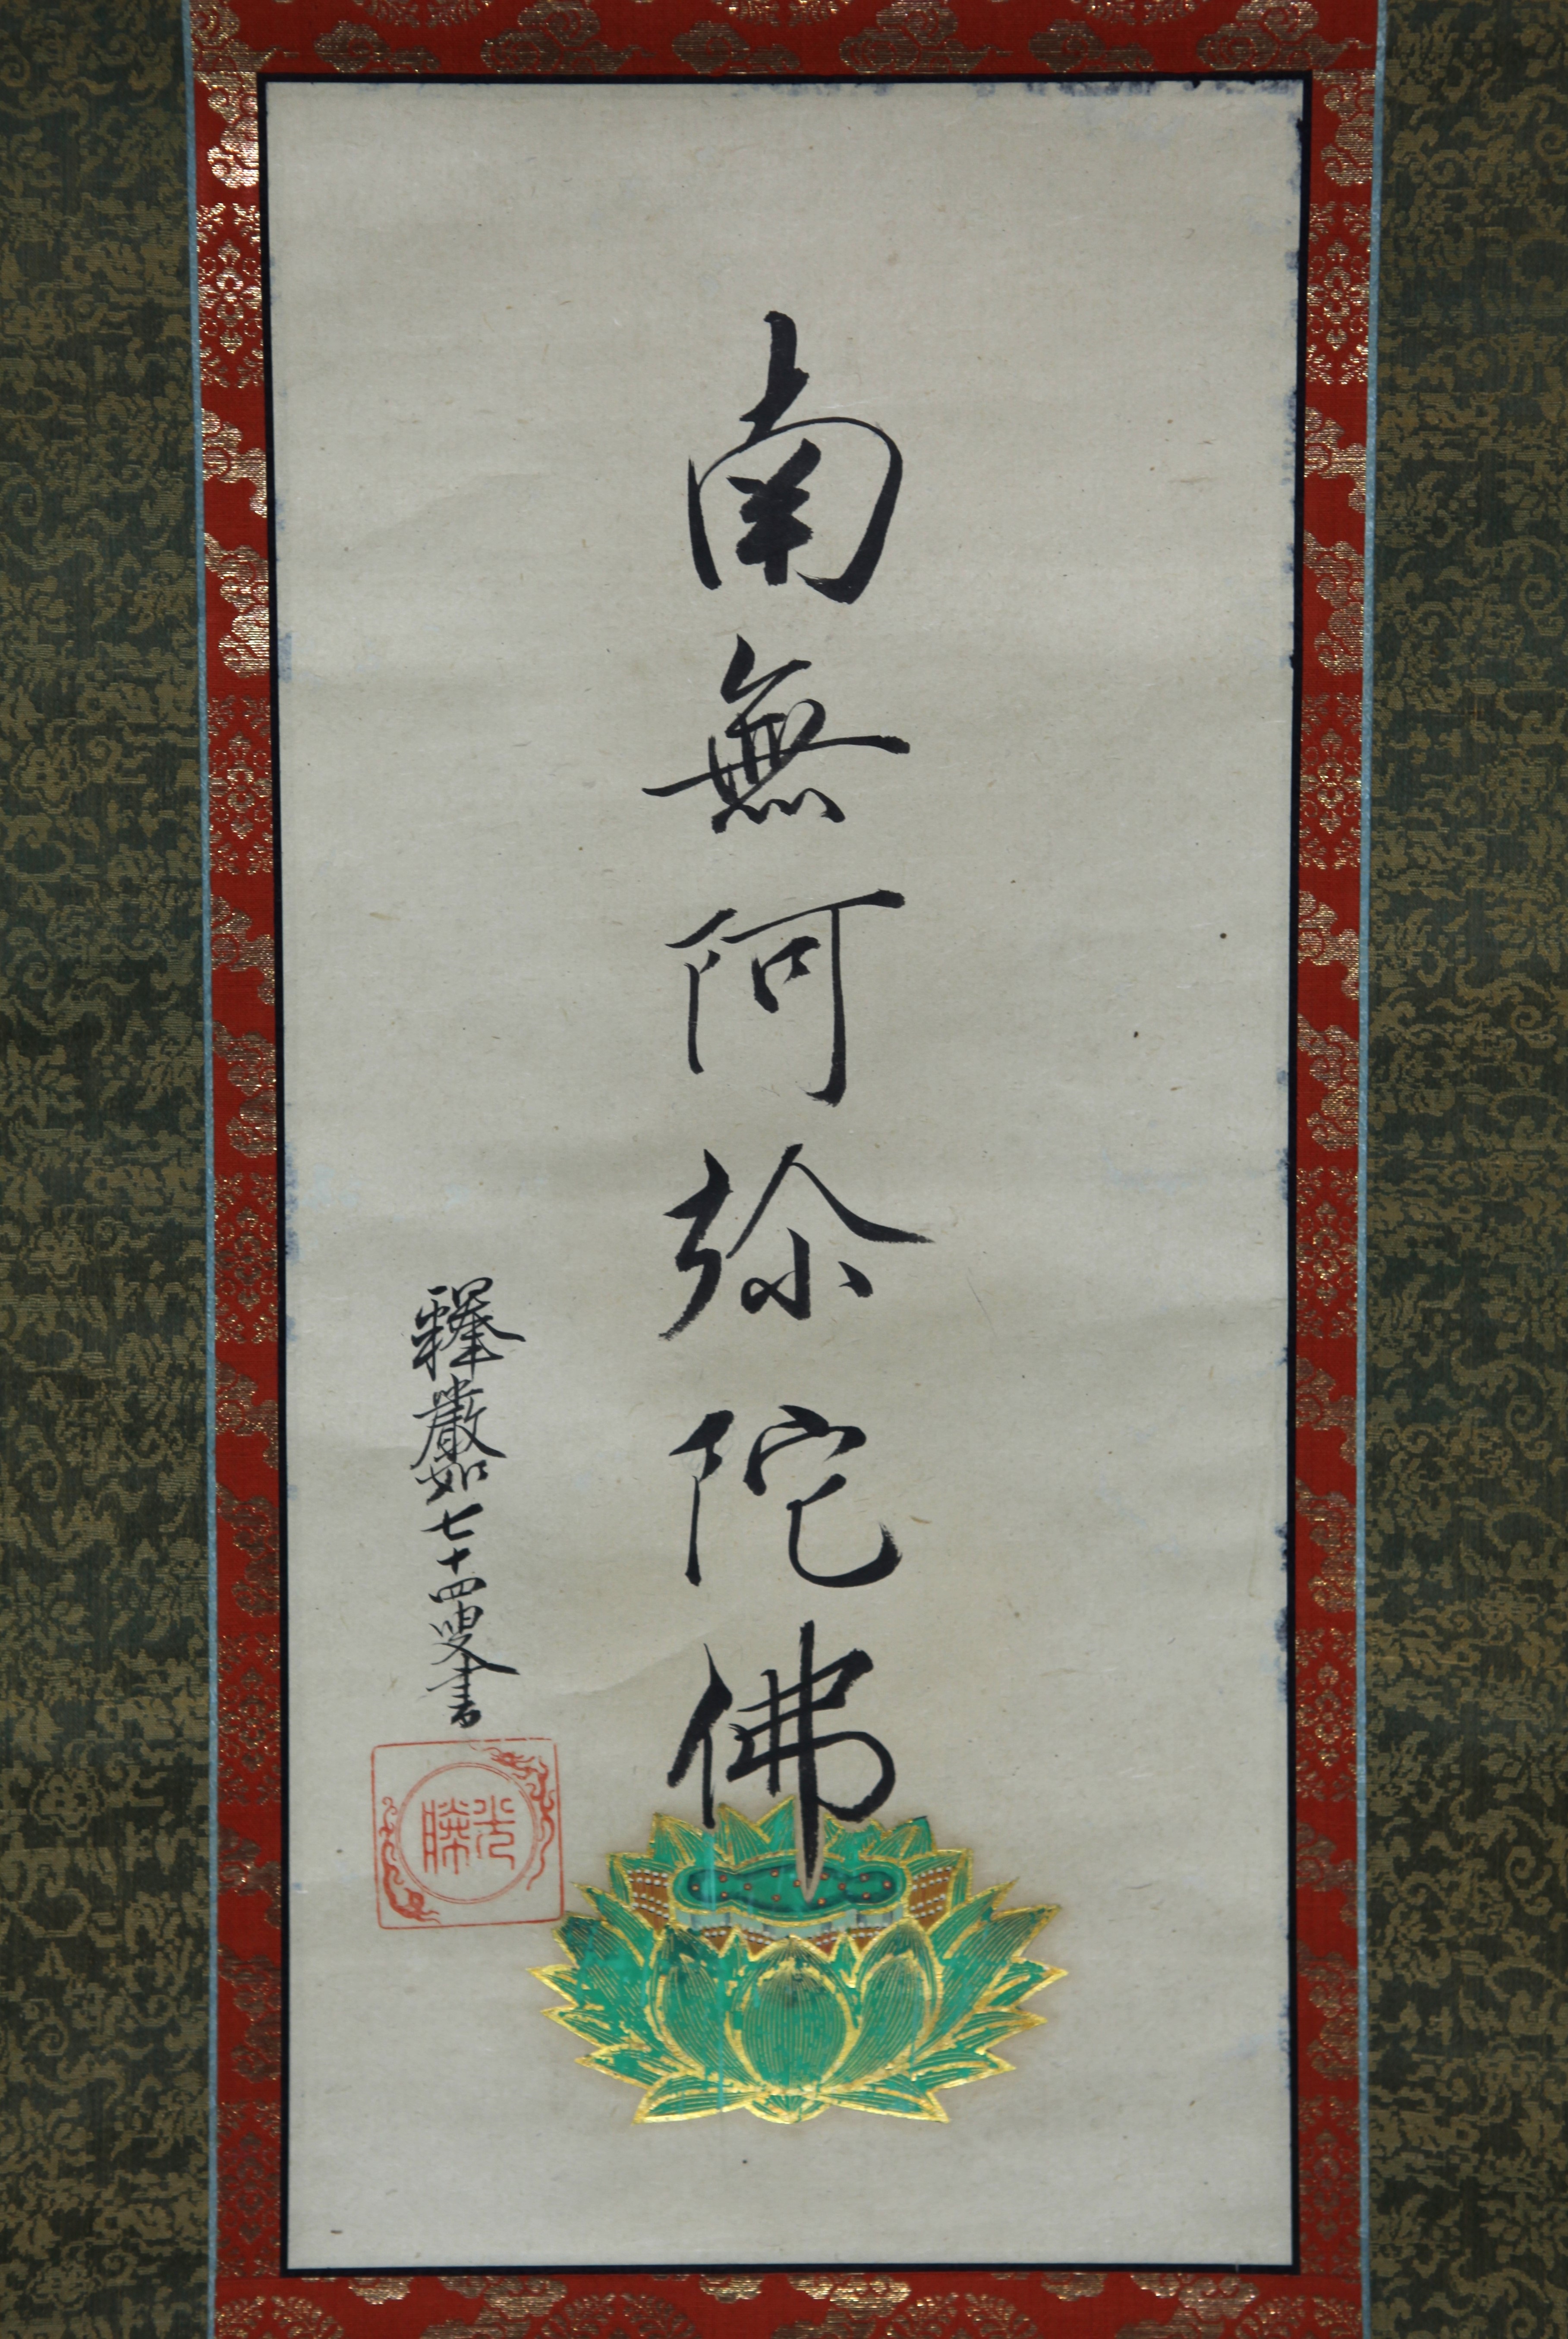 南無阿弥陀佛
釋嚴如七十四叟書
光勝